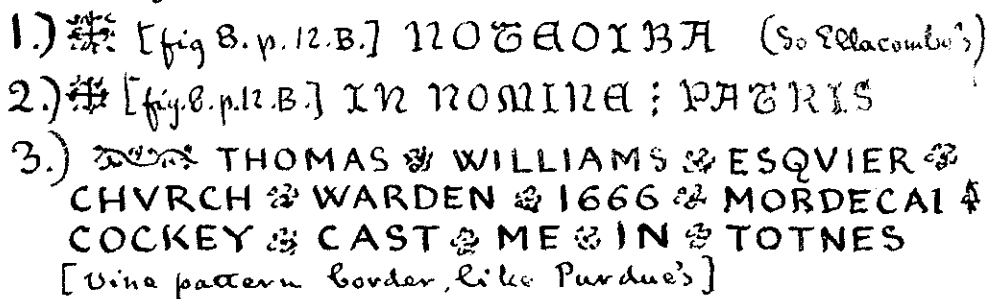 1.) [fig 8. p. 12. B.] NOTEOIBA (So Ellacombe's)
2.) [fig. 8. p. 12. B.] IN NOMINE : PATRIS
3.) THOMAS WILLIAMS ESQVIER
CHVRCH WARDEN 1666 MORDECAI
COCKEY CAST ME IN TOTNES
[Vine pattern border, like Purdue's]